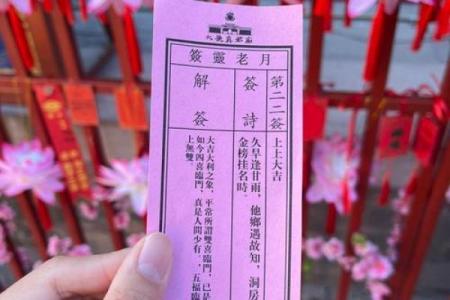 月老靈簽
第二二簽
簽詩
解簽
上上大吉
久旱逢甘雨，他鄉遇故知，洞房
金榜挂名時。
大吉大利之象，平常所謂雙喜臨門，已是
如今四喜臨門，真是人間少有，五福臨
上無雙。